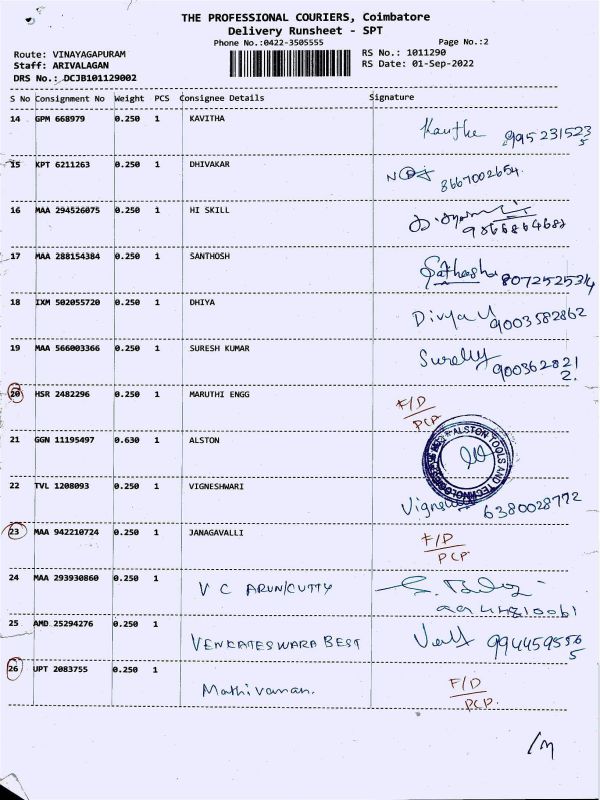 THE PROFESSIONAL COURIERS, Coimbatore
Delivery Runsheet - SPT
Phone No.:0422-3505555 Page No.:2
Route: VINAYAGAPURAM RS No.: 1011290
Staff: ARIVALAGAN RS Date: 01-Sep-2022
DRS No.: DCJB101129002
S No Consignment No Weight PCS Consignee Details Signature
14 GPM 668979 0.250 1 KAVITHA Kavitha 9952315235
15 KPT 6211263 0.250 1 DHIVAKAR 8667002654
16 MAA 294526075 0.250 1 HI SKILL
17 MAA 288154384 0.250 1 SANTHOSH 8072525314
18 IXM 502055720 0.250 1 DHIYA Divya 9003582862
19 MAA 566003366 0.250 1 SURESH KUMAR 9003628212
20 HSR 2482296 0.250 1 MARUTHI ENGG F/D
PCP
21 GGN 11195497 0.630 1 ALSTON ALSTON TOOLS AND TECHNOLOGIES
22 TVL 1208093 0.250 1 VIGNESHWARI 6380028772
23 MAA 942210724 0.250 1 JANAGAVALLI F/D
PCP
24 MAA 293930860 0.250 1 V C ARUN/CUTTY
25 AMD 25294276 0.250 1 VENKATESWARA BEST 9944595565
26 UPT 2083755 0.250 1 Mathivanan. F/D
PCP.